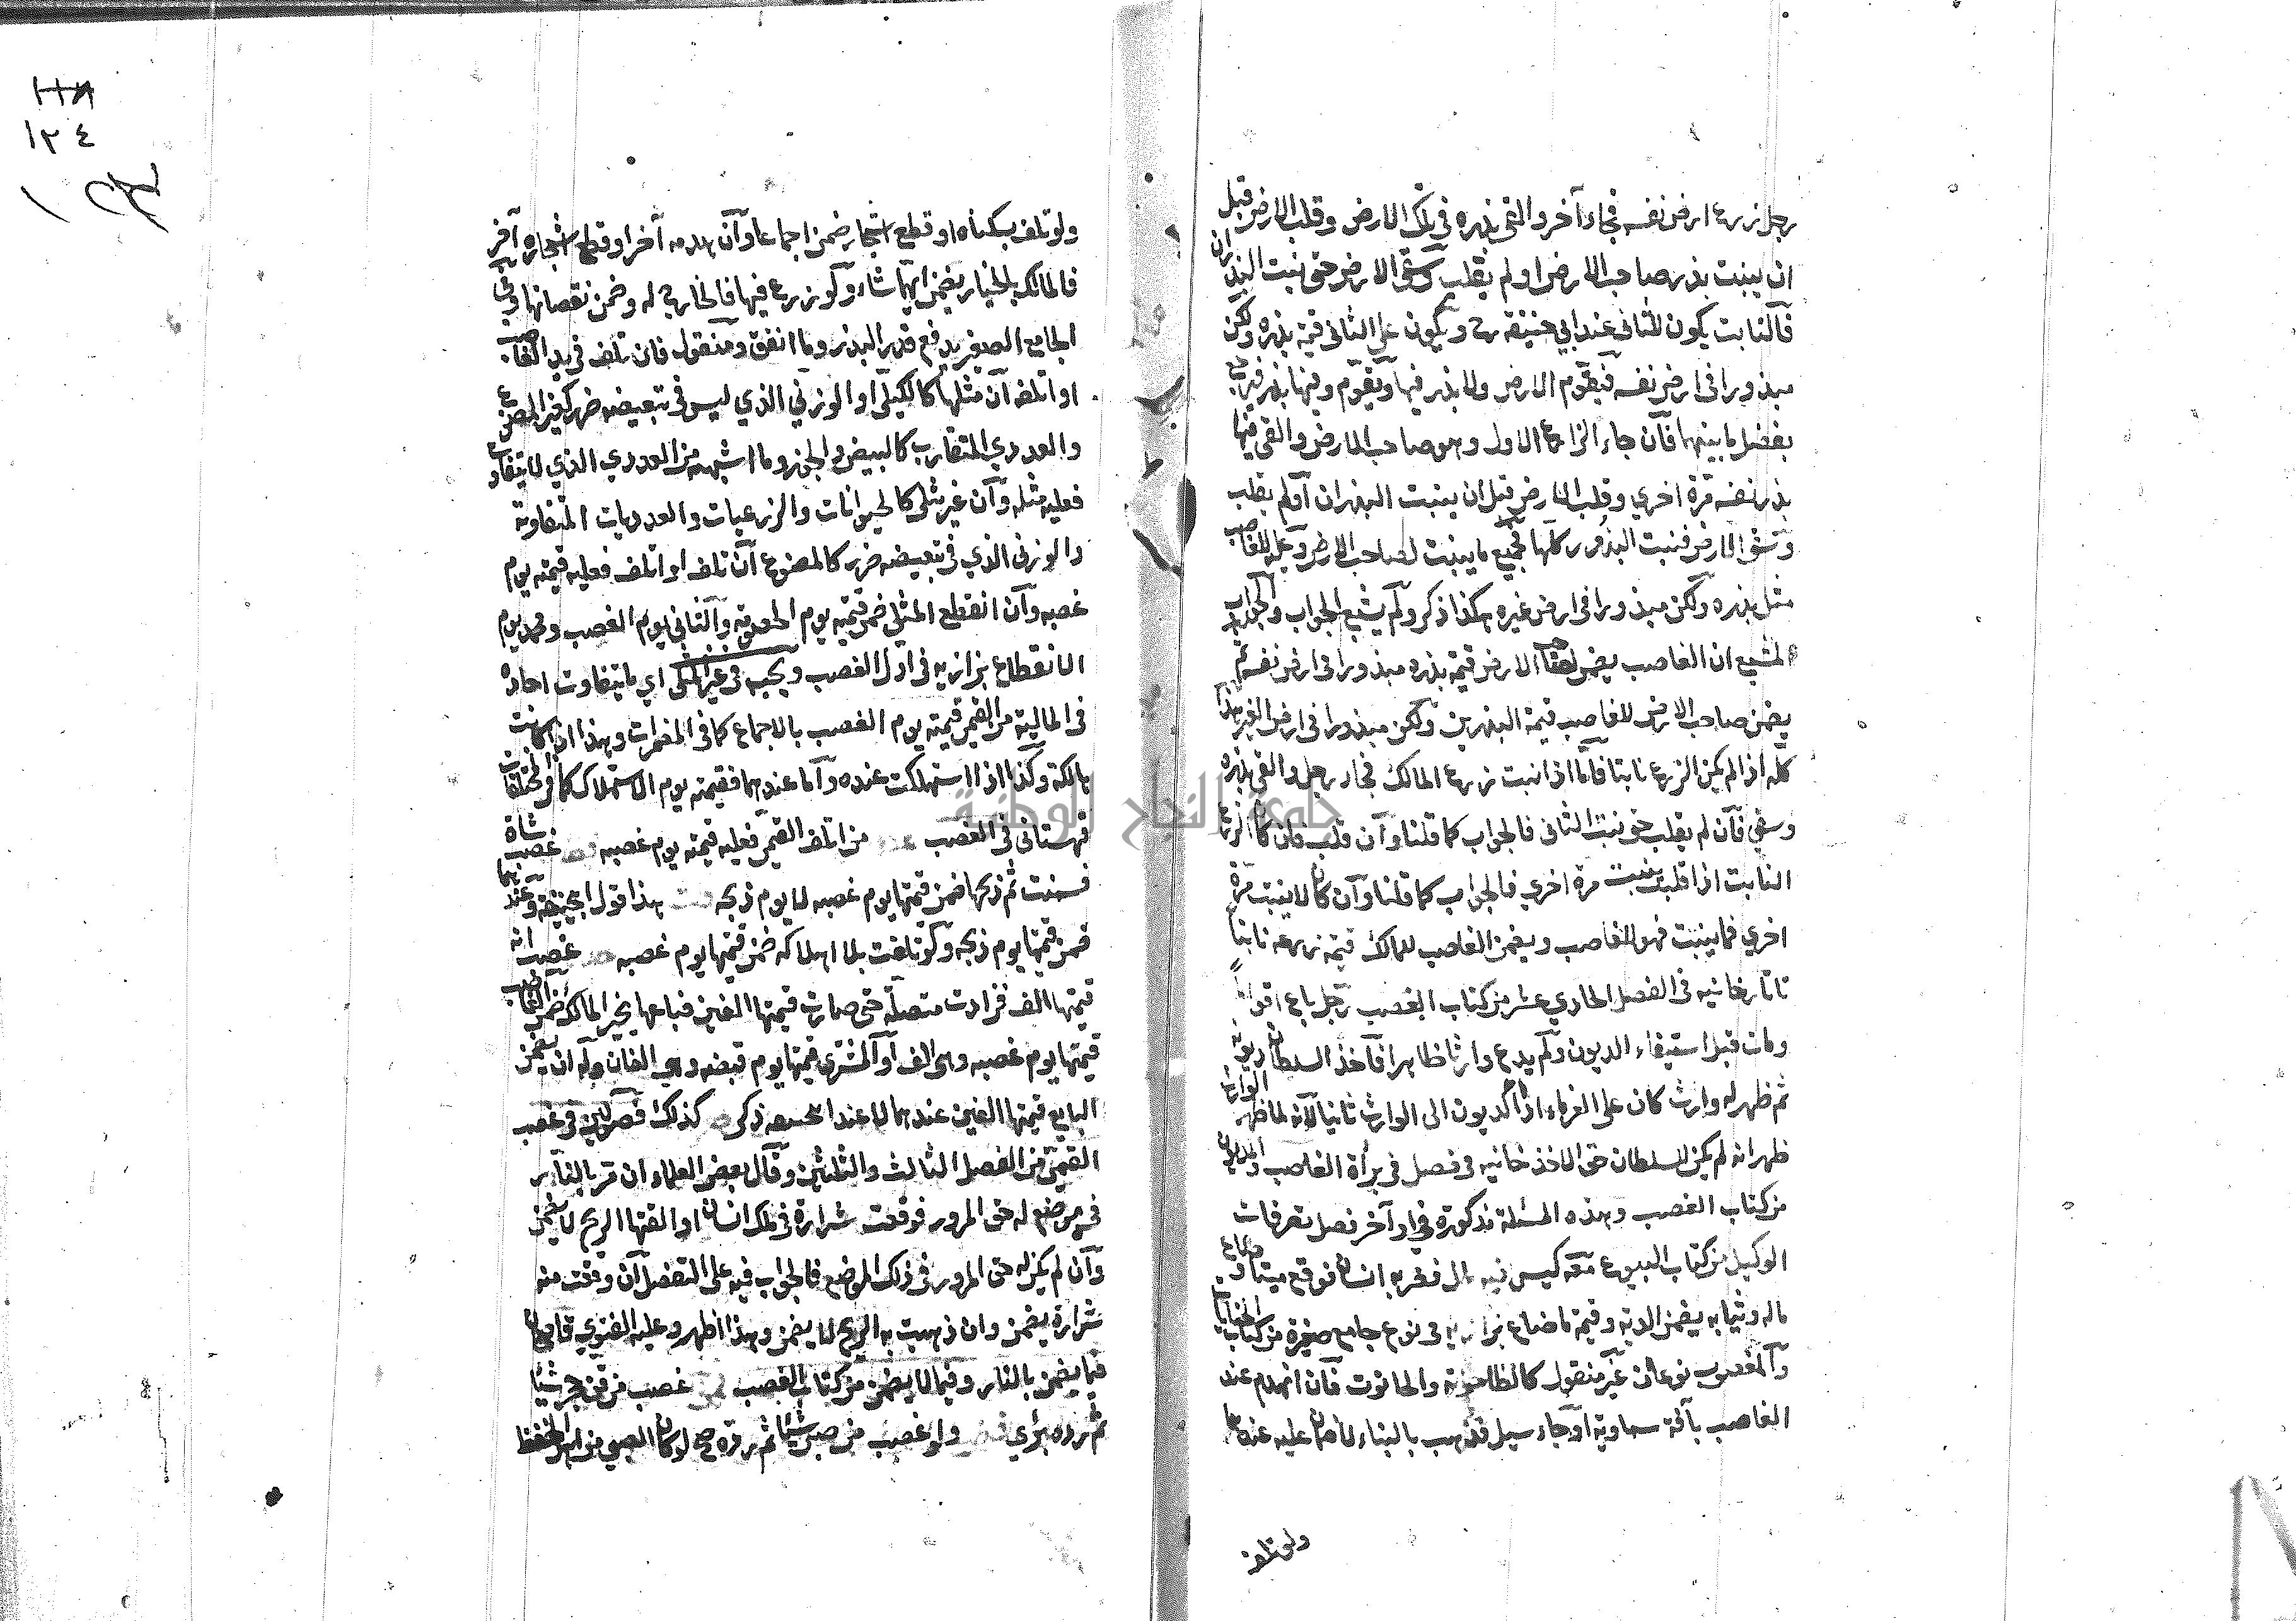 رجل زرع ارض نفسه فجاء آخر والقى بذره في تلك الارض وقلب الارض قبل
ان ينبت بذر صاحب الارض او لم يقلب وسقى الارض حتى نبت البذران
فالنابت يكون للثاني عند ابي حنيفة رح ويكون على الثاني قيمة بذره ولكن
مبذورا في ارض نفسه فيقوم الارض ولا بذر فيها ويقوم وفيها بذر فيرجع
بفضل ما بينهما فان جاء الزارع الاول وهو صاحب الارض والقى فيها
بذر نفسه مرة اخري وقلب الارض قبل ان ينبت البذران او لم يقلب
وسقى الارض فنبت البذور كلها فجميع ما ينبت لصاحب الارض وعليه للغاصب
مثل بذره ولكن مبذورا في ارض غيره هكذا ذكر ولم يشبع الجواب والجواب
المشبع ان الغاصب يضمن لصاحب الارض قيمة بذره مبذورا في ارض نفسه ثم
يضمن صاحب الارض للغاصب قيمة البذرين ولكن مبذورا في ارض الغير هذا
كله اذا لم يكن الزرع نابتا فاما اذا نبت زرع المالك فجاء رجل والقى بذره
وسقي فان لم يقلب حتى نبت الثاني فالجواب كما قلنا وان قلب فان كان الزرع
النابت اذا قلب ينبت مرة اخري فالجواب كما قلنا وان كان لا ينبت مرة
اخري فما ينبت فهو للغاصب ويضمن الغاصب للمالك قيمة زرعه نابتا
تاتارخانيه في الفصل الحادي عشر من كتاب الغصب رجل باع اقواما
ومات قبل استيفاء الديون ولم يدع وارثا ظاهرا فاخذ السلطان ديونه
ثم ظهر له وارث كان على الغرماء اداء الديون الى الوارث ثانيا لانه لما ظهر الوارث
ظهر انه لم يكن للسلطان حق الاخذ خانيه في فصل في براءة الغاصب والمديون
من كتاب الغصب وهذه المسئلة مذكورة في اوآخر فصل تصرفات
الوكيل من كتاب البيوع معه كيس فيه مال فضربه انسان فوقع ميتا وضاع
ماله وثيابه يضمن الدية وقيمة ما ضاع بزازيه في نوع جامع صغيره من كتاب الجنايات
والمغصوب نوعان غير منقول كالطاحونة والحانوت فان انهدم عند
الغاصب بآفة سماوية او جاء سيل فذهب بالبناء لا ضمان عليه عندهما
ولو تلف
ولو تلف بسكناه او قطع اشجار ضمن اجماعا وان هدمه آخر او قطع اشجاره آخر
فالمالك بالخيار يضمن ايهما شاء ولو زرع فيها فالخارج له وضمن نقصانها وفي
الجامع الصغير يدفع قدر البذر وما انفق ومنقول فان تلف في يد الغاصب
او اتلفه ان مثليا كالكيلي او الوزني الذي ليس في تبعيضه ضرر كغير المصوغ
والعددي المتقارب كالبيض والجوز وما اشبهه من العددي الذي لا يتفاوت
فعليه مثله وان غير مثلي كالحيوانات والزرعيات والعدديات المتفاوتة
والوزني الذي في تبعيضه ضرر كالمصوغ ان تلف او اتلف فعليه قيمته يوم
غصبه وان انقطع المثلي ضمن قيمته يوم الخصومة والثاني يوم الغصب ومحمد يوم
الانقطاع بزازيه في اول الغصب ويجب في غير المثلي اي ما يتفاوت احاده
في المالية من القيمي قيمته يوم الغصب بالاجماع كما في المضمرات وهذا اذا كانت
هالكة وكذا اذا استهلكت عنده واما عندهما فقيمته يوم الاستهلاك كما في المختلفات
قهستاني في الغصب من اتلف القيمي فعليه قيمته يوم غصبه غصب شاة
فسمنت ثم ذبحها ضمن قيمتها يوم غصبه لا يوم ذبحه هذا قول ابي حنيفة وعندهما
ضمن قيمتها يوم ذبحه ولو تلفت بلا اهلاكه ضمن قيمتها يوم غصبه غصب امة
قيمتها الف فزادت متصلة حتى صارت قيمتها الفين فباعها يخير المالك ضمن الغاصب
قيمتها يوم غصبه وهي الف او المشتري قيمتها يوم قبضه وهي الفان وله ان يضمن
البايع قيمتها الفين عندهما لا عند ابي حنيفة ذكر كذلك فصولين في غصب
القيمي من الفصل الثالث والثلثين وقال بعض العلماء ان مر بالنار
في موضع له حق المرور فوقعت شرارة في ملك انسان او القتها الريح لا يضمن
وان لم يكن له حق المرور في ذلك الموضع فالجواب فيه على التفصيل ان وقعت منه
شرارة يضمن وان ذهبت به الريح لا يضمن وهذا اظهر وعليه الفتوي قاضيخان
فيما يضمن بالنار وفيما لا يضمن من كتاب الغصب غصب من قن محجر شيئا
ثم رده بري ولو غصب من صبي شيئا ثم رده صح لو كان الصبي من اهل الحفظ
١٢٤
جامعة النجاح الوطنية